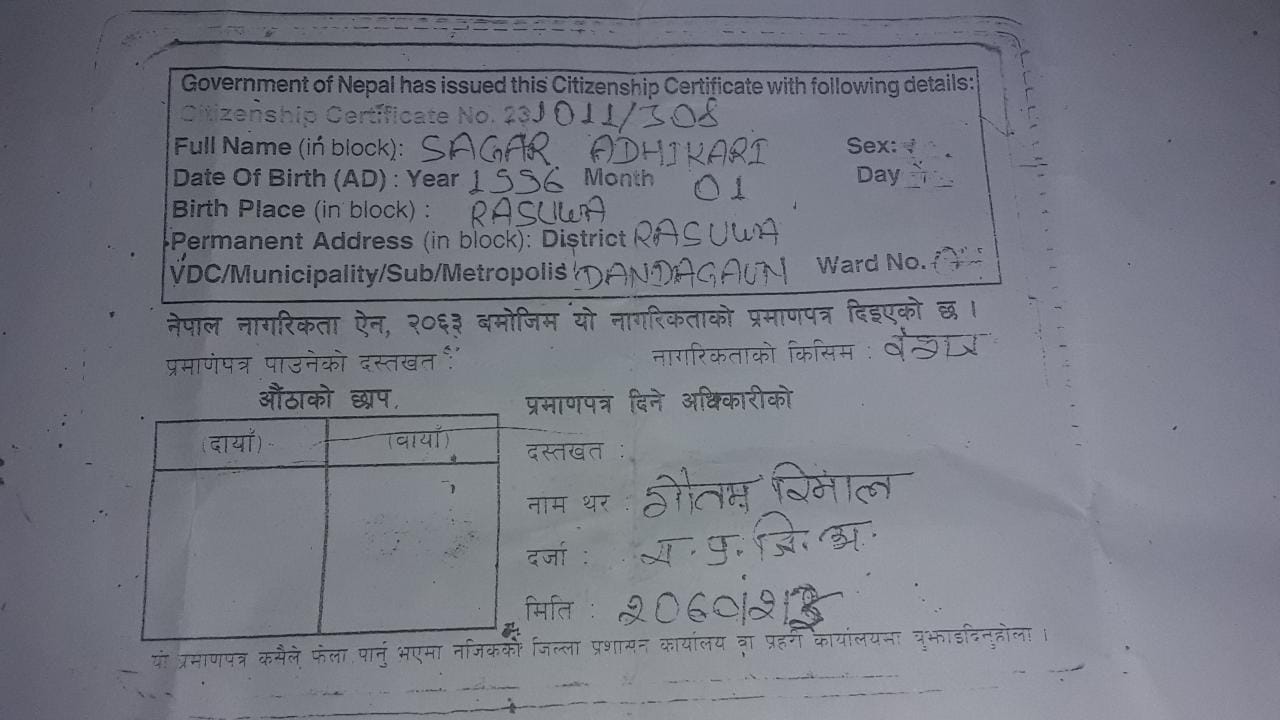 Government of Nepal has issued this Citizenship Certificate with following details:
Citizenship Certificate No. 231011/308
Full Name (in block): SAGAR ADHIKARI Sex:
Date Of Birth (AD) : Year 1996 Month 01 Day
Birth Place (in block) : RASUWA
Permanent Address (in block): District RASUWA
VDC/Municipality/Sub/Metropolis DANDAGAUN Ward No.
नेपाल नागरिकता ऐन, २०६३ बमोजिम यो नागरिकताको प्रमाणपत्र दिइएको छ ।
प्रमाणपत्र पाउनेको दस्तखत : नागरिकताको किसिम : वंशज
औंठाको छाप प्रमाणपत्र दिने अधिकारीको
(दायाँ) (बायाँ) दस्तखत :
नाम थर : गौतम रिमाल
दर्जा : स. प्र. जि. अ.
मिति :
यो प्रमाणपत्र कसैले फेला पार्नु भएमा नजिकको जिल्ला प्रशासन कार्यालय वा प्रहरी कार्यालयमा बुझाइदिनुहोला ।